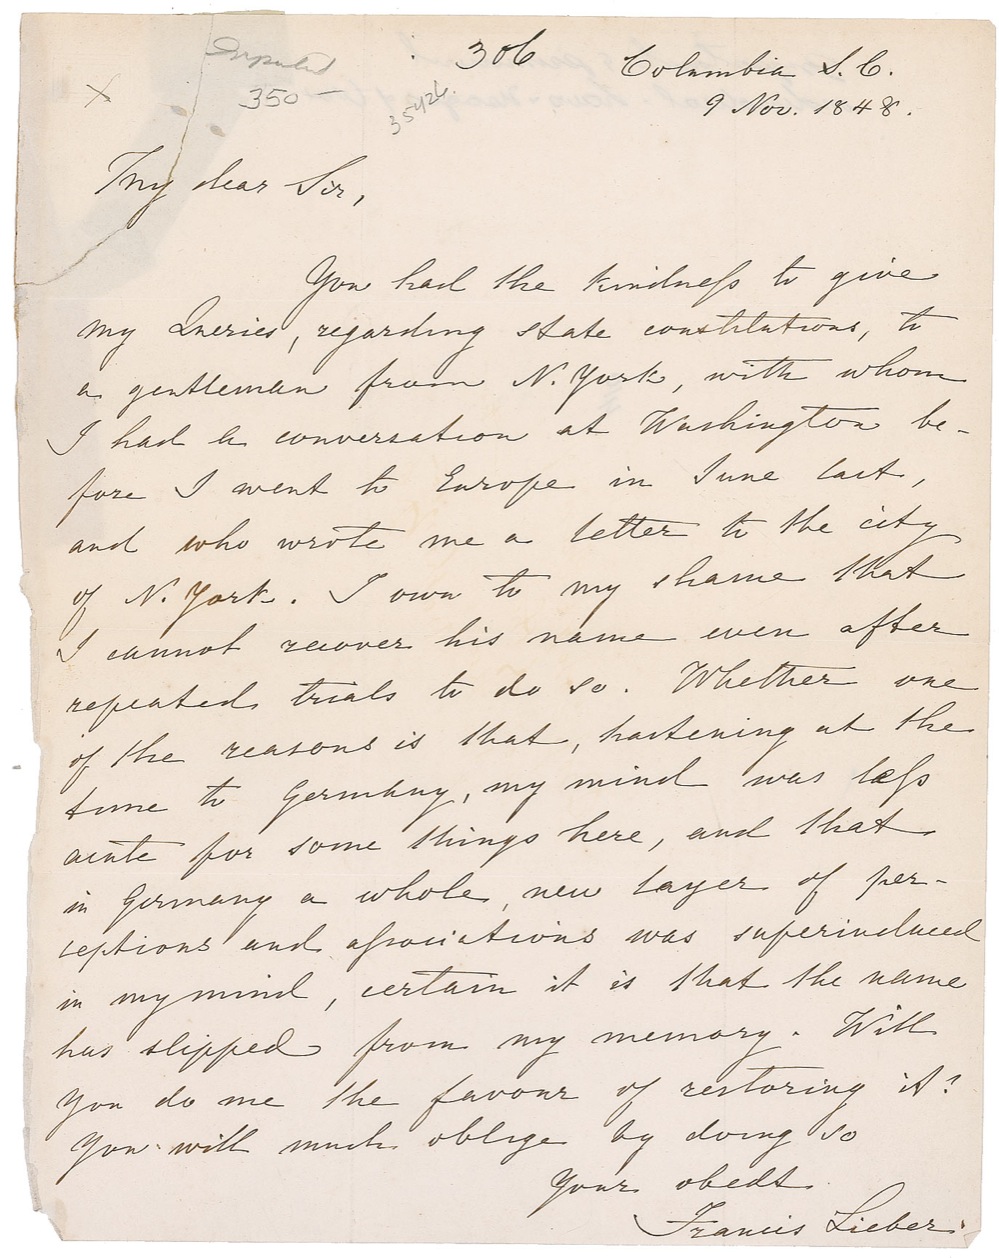 306
Columbia S. C.
350 —
35426.
9 Nov. 1848.
My dear Sir,
You had the kindness to give
my Queries, regarding state constitutions, to
a gentleman from N. York, with whom
I had a conversation at Washington be-
fore I went to Europe in June last,
and who wrote me a letter to the city
of N. York. I own to my shame that
I cannot recover his name even after
repeated trials to do so. Whether one
of the reasons is that, hastening at the
time to Germany, my mind was less
acute for some things here, and that
in Germany a whole, new layer of per-
ceptions and associations was superinduced
in my mind, certain it is that the name
has slipped from my memory. Will
you do me the favour of restoring it?
You will much oblige by doing so
Your obedt
Francis Lieber.